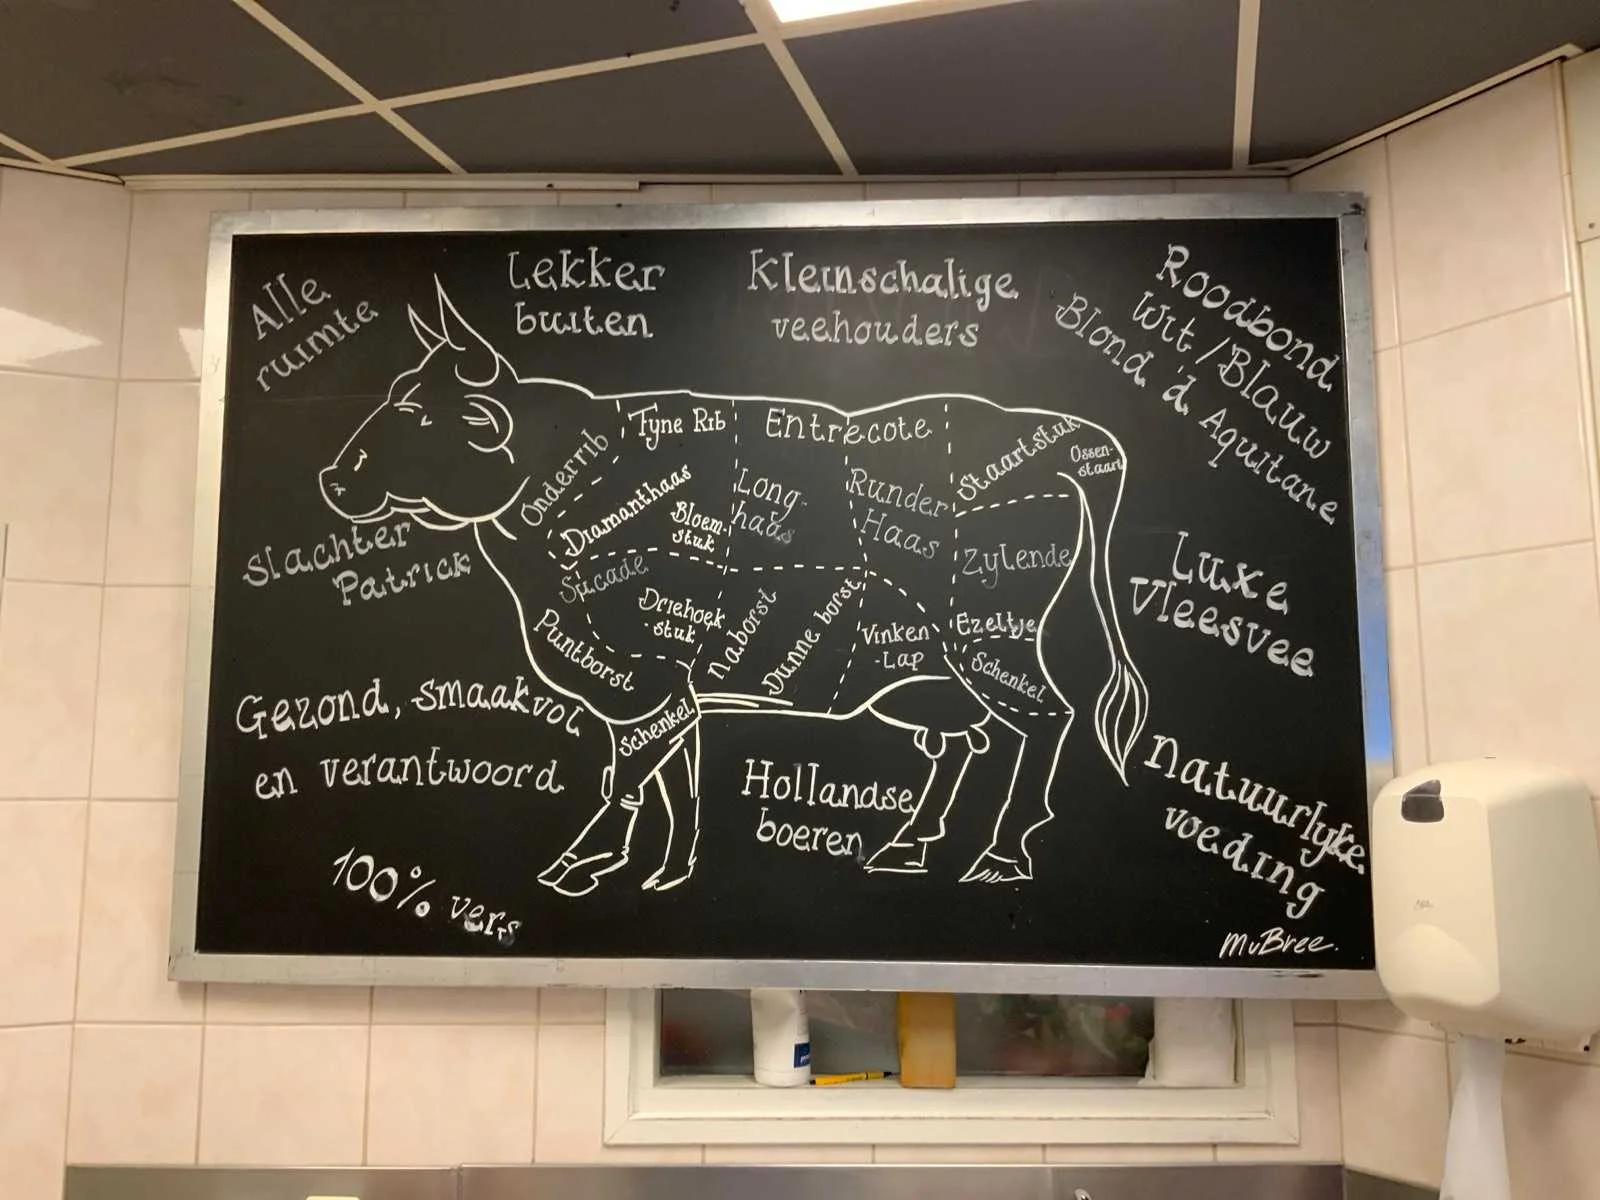 Alle
ruimte
Lekker
buiten
Kleinschalige
veehouders
Roodbond
Wit / Blauw
Blond 'd Aquitane
Onderrib
Fyne Rib
Entrecote
Staartstuk
Ossen-
staart
Diamanthaas
Bloem-
stuk
Long-
haas
Runder
Haas
Zylende
Slachter
Patrick
Sucade
Driehoek
-stuk
Naborst
Dunne borst
Vinken
-Lap
Ezeltje
Schenkel
Puntborst
Schenkel
Luxe
Vleesvee
Gezond, smaakvol
en verantwoord
Hollandse
boeren
Natuurlyke
voeding
100% vers
MvBree.